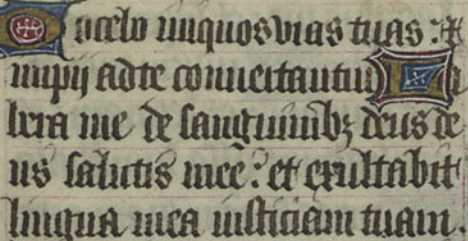 Docebo iniquos vias tuas : &
impij ad te conuertantur Li
bera me de sanguinibꝫ deus de
us salutis mee : et exultabit
lingua mea iusticiam tuam .